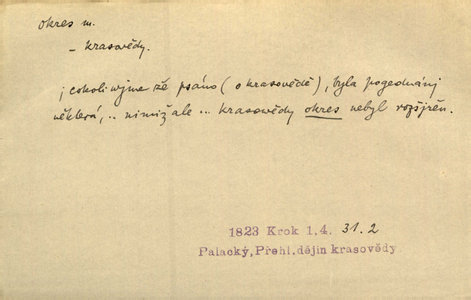 okres m.
- krasovědy.
; cokoli wjme zě psáno (o krasovědě), byla pogednánj
některá, .. nimiž ale ... krasovědy okres nebyl rozšjřěn.
1823 Krok 1.4. 31.2
Palacký, Přehl. dějin krasovědy